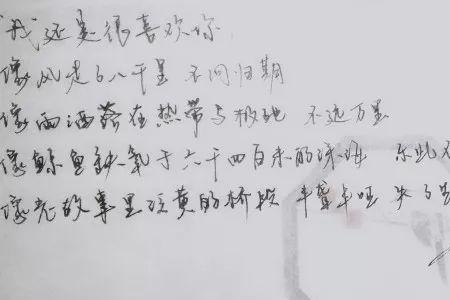 "我还是很喜欢你
像风走了八千里 不问归期
像雨洒落在热带与极地 不远万里
像鲸鱼缺氧于六千四百米的深海 乐此不
像老故事里泛黄的桥段 半聋半哑 失了